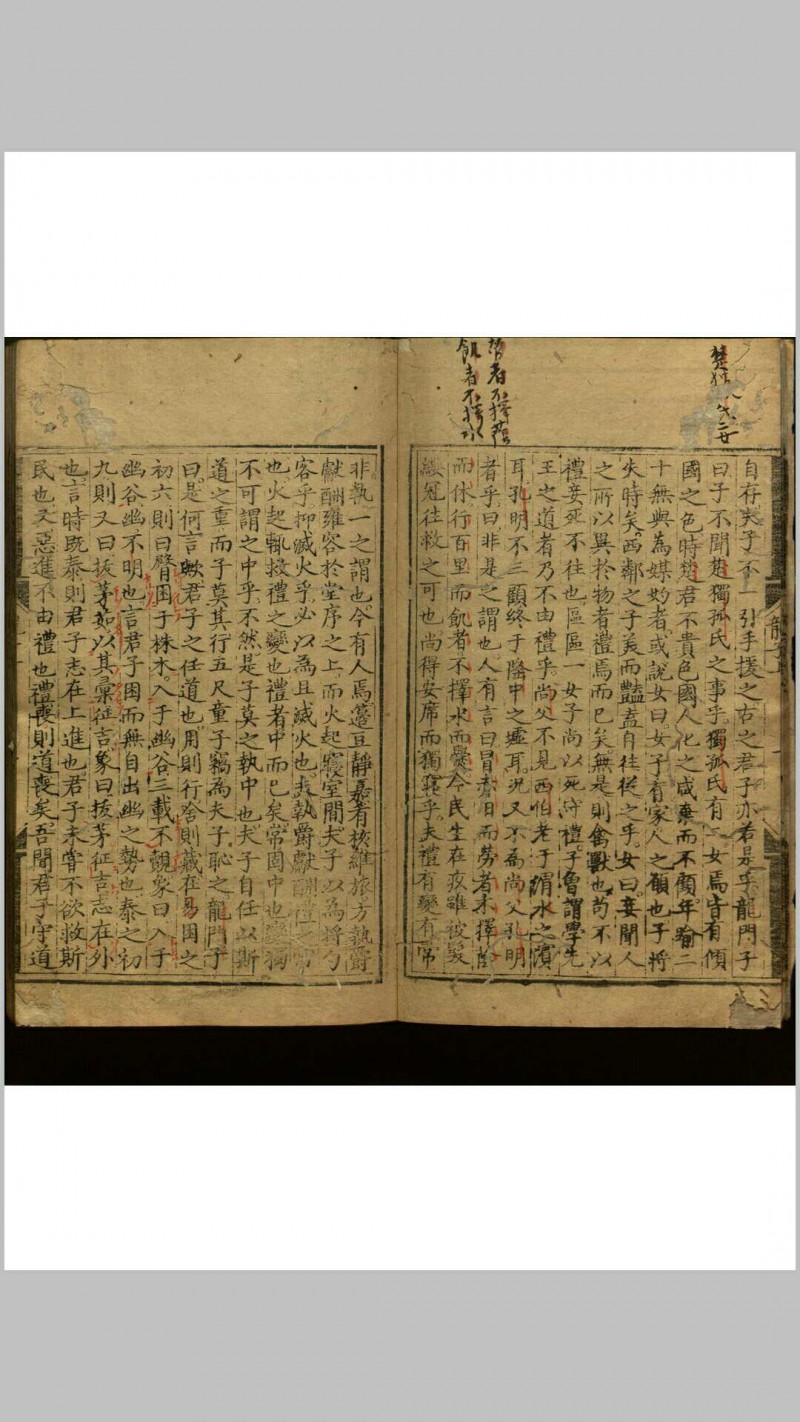 自存夫子不一引手援之古之君子亦若是乎龍門子
曰子不聞楚獨孤氏之事乎獨孤氏有二女焉皆有傾
國之色時楚君不貴色國人化之咸棄而不顧年踰二
十無與為媒妁者或說女曰女子有家人之願也子將
失時矣西鄰之子美而豔盍自往從之乎女曰妾聞人
之所以異於物者禮焉而已矣無是則禽獸也苟不以
禮妾死不往也區區一女子尚以死守禮子魯謂學先
王之道者乃不由禮乎尚父不見西伯老于渭水之濱
耳孔明不三顧終于隆中之墟耳況又不為尚父孔明
者乎曰非是之謂也人有言曰冒赤日而勞者不擇蔭
而休行百里而飢者不擇水而飲今民生在疚雖被髮
纓冠往救之可也尚得安席而獨寢乎夫禮有變有常
非執一之謂也今有人焉籩豆靜嘉肴核維旅方執爵
獻酬雍容於堂序之上而火起寢室間夫子以為將勺
容乎抑滅火乎必以為且滅火也夫執爵獻酬禮之常
也火起輒救禮之變也禮者中而已矣常固中也變獨
不可謂之中乎不然是子莫之執中也夫子自任以斯
道之重而子莫其行五尺童子竊為夫子恥之龍門子
曰是何言歟君子之任道也用則行舍則藏在易困之
初六則曰臀困于株木入于幽谷三載不覿象曰入于
幽谷幽不明也言君子困而無自出幽之勢也泰之初
九則又曰拔茅茹以其彙征吉象曰拔茅征吉志在外
也言時既泰則君子志在上進也君子未嘗不欲救斯
民也又惡進不由禮也禮喪則道喪矣吾聞君子守道